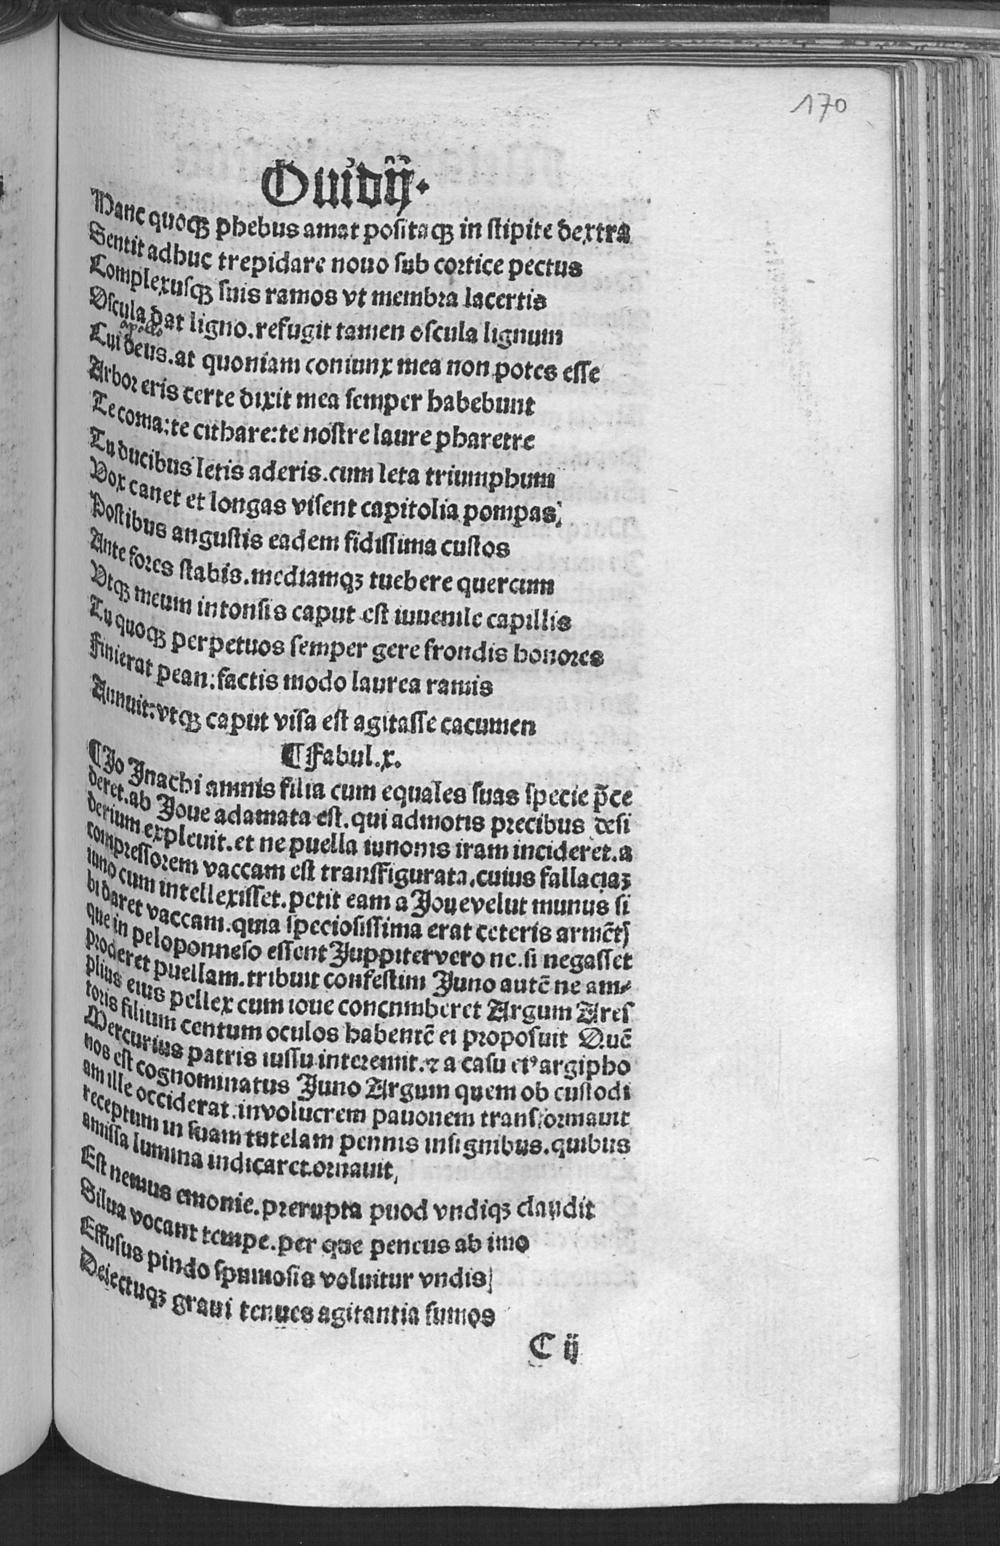 170
Ouidij.
Hanc quoqꝫ phebus amat positaqꝫ in stipite dextra
Sentit adhuc trepidare nouo sub cortice pectus
Complexusqꝫ suis ramos vt membra lacertis
Oscula dat ligno.refugit tamen oscula lignum
apollo
Cui deus.at quoniam coniunx mea non potes esse
Arbor eris certe dixit mea semper habebunt
Te coma:te cithare:te nostre laure pharetre
Tu ducibus letis aderis.cum leta triumphum
Vox canet et longas visent capitolia pompas;
Postibus angustis eadem fidissima custos
Ante fores stabis.mediamqꝫ tuebere quercum
Vtqꝫ meum intonsis caput est iuuenile capillis
Tu quoqꝫ perpetuos semper gere frondis honores
Finierat pean:factis modo laurea ramis
Annuit:vtqꝫ caput visa est agitasse cacumen
¶Fabul.x.
¶Jo Jnachi amnis filia cum equales suas specie p̄ce
deret.ab Joue adamata est.qui admotis precibus desi
derium expleuit.et ne puella iunonis iram incideret.a
compressorem vaccam est transfigurata.cuius fallaciaꝫ
iuno cum intellexisset.petit eam a Jouevelut munus si
bi daret vaccam.quia speciosissima erat ceteris armētꝭ
que in peloponneso essent Juppitervero ne.si negasset
proderet puellam.tribuit confestim Juno autē ne am⸗
plius eius pellex cum ioue concumberet Argum Ares
toris filium centum oculos habentē ei proposuit Quē
Mercurius patris iussu interemit.⁊ a casu eiꝰ argipho
nos est cognominatus Juno Argum quem ob custodi
am ille occiderat.inuolucrem pauonem transformauit
receptum in suam tutelam pennis insignibus.quibus
amissa lumina indicaret.ornauit,
Est nemus emonie.prerupta puod vndiqꝫ claudit
Silua vocant tempe.per que peneus ab imo
Effusus pindo spumosis voluitur vndis
Deiectuqꝫ graui tenues agitantia fumos
C ij